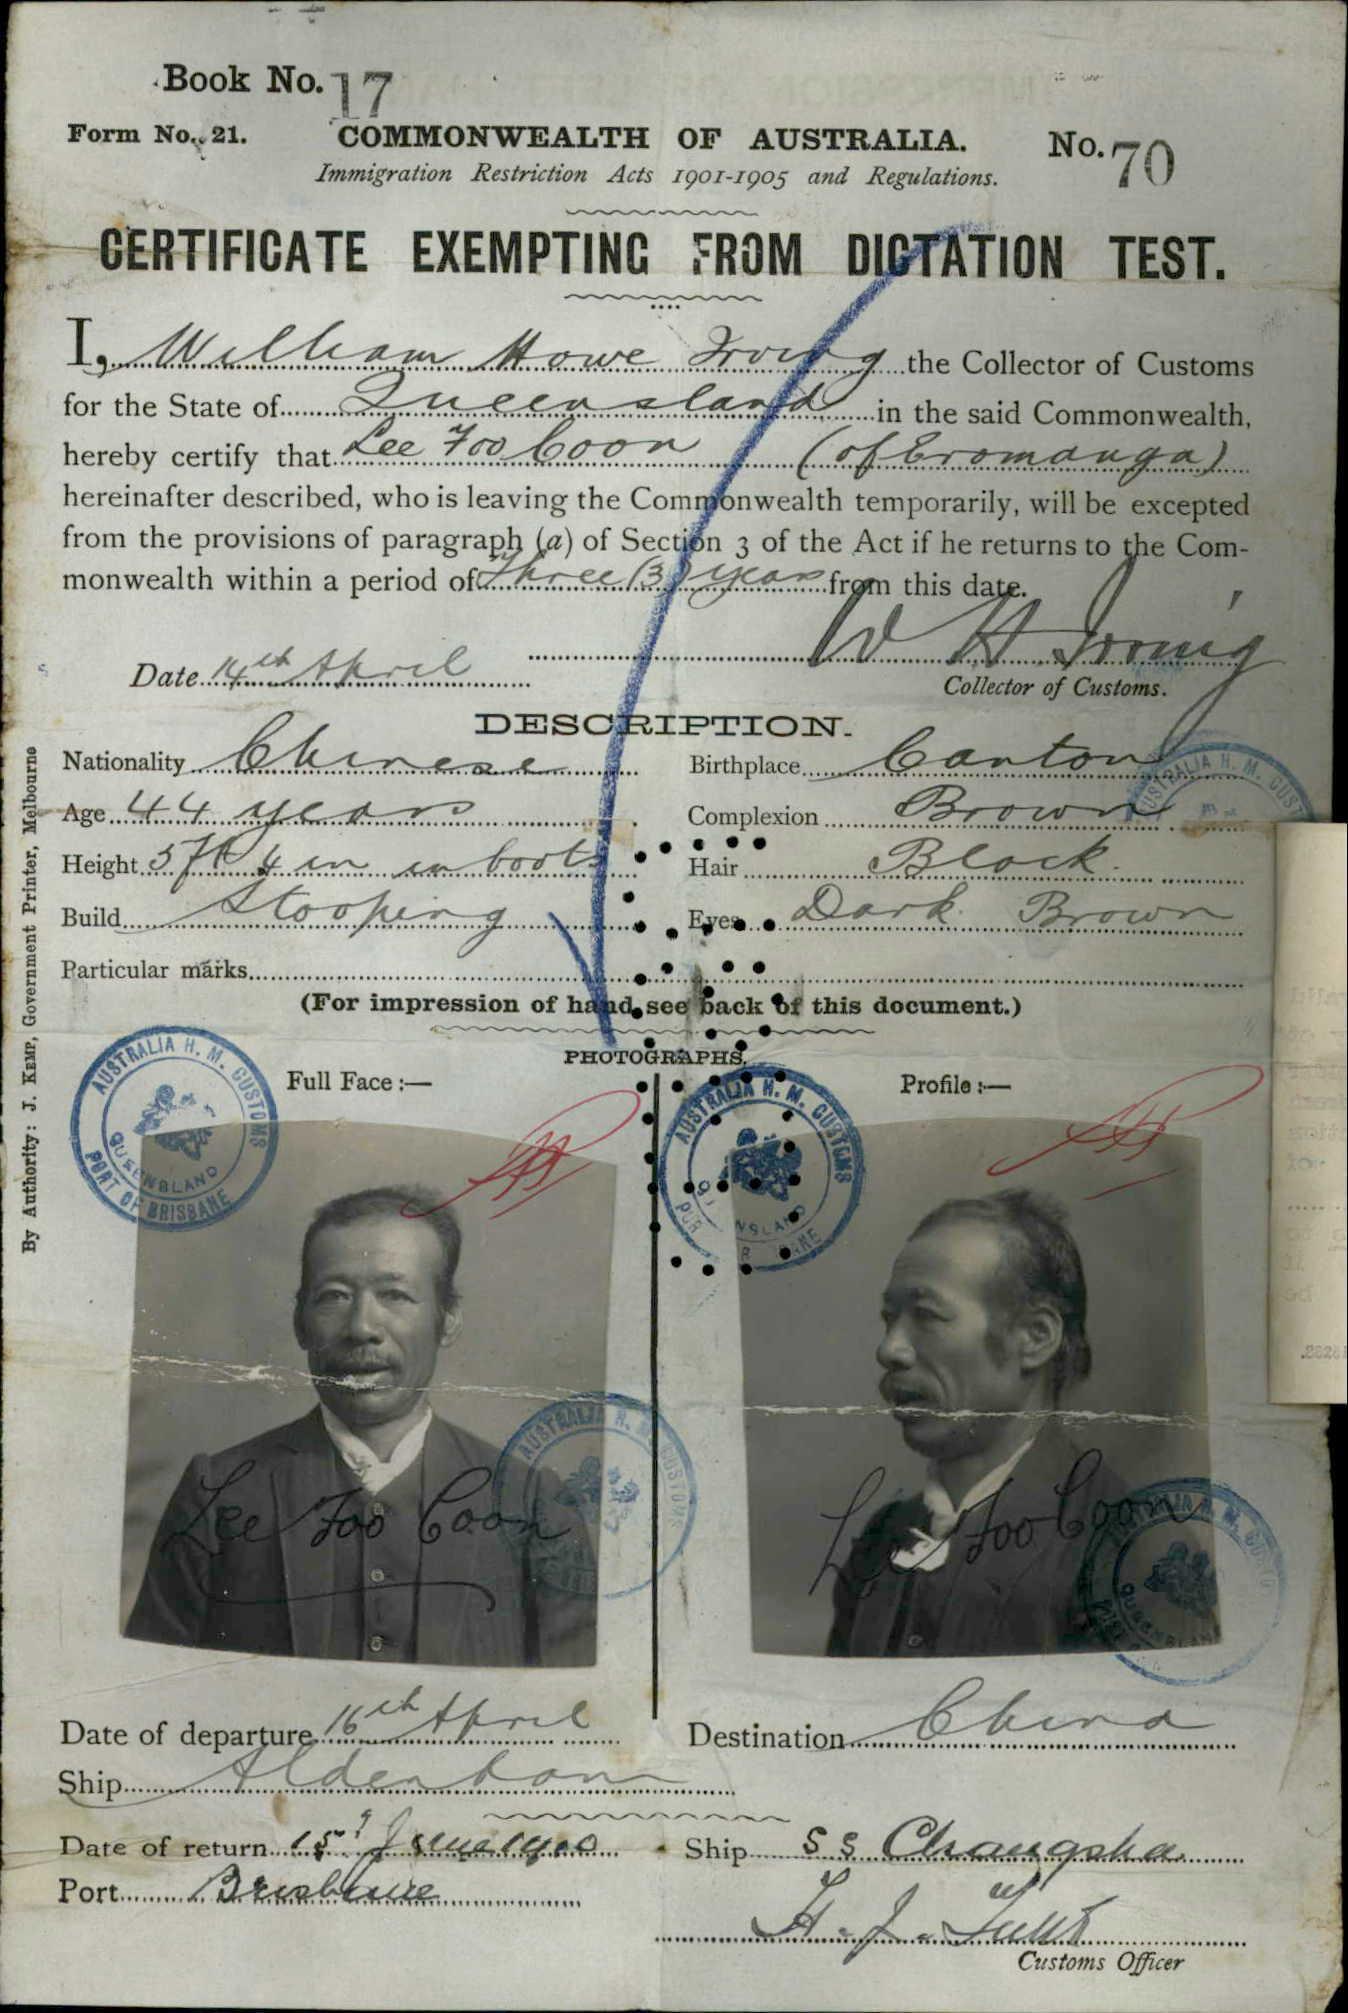 Book No. 17
Form No. 21. COMMONWEALTH OF AUSTRALIA. No. 70
Immigration Restriction Acts 1901-1905 and Regulations.
CERTIFICATE EXEMPTING FROM DICTATION TEST.
I, William Howe Irving the Collector of Customs
for the State of Queensland in the said Commonwealth,
hereby certify that Lee Foo Coon (of Eromanga)
hereinafter described, who is leaving the Commonwealth temporarily, will be excepted
from the provisions of paragraph (a) of Section 3 of the Act if he returns to the Com-
monwealth within a period of Three (3) years from this date.
W H Irving
Date 14th April
Collector of Customs.
DESCRIPTION.
Nationality Chinese Birthplace Canton
Age 44 years Complexion Brown
Height 5 ft 4 in in boots Hair Black.
Build Stooping Eyes Dark Brown
Particular marks
(For impression of hand see back of this document.)
PHOTOGRAPHS.
Full Face :— Profile :—
AUSTRALIA H. M. CUSTOMS
QUEENSLAND
PORT OF BRISBANE
AUSTRALIA H. M. CUSTOMS
Lee Foo Coon Lee Foo Coon
Date of departure 16th April Destination China
Ship Aldenham
Date of return 15 June Ship S S Changsha
Port Brisbane
H. J.
Customs Officer
By Authority: J. KEMP, Government Printer, Melbourne